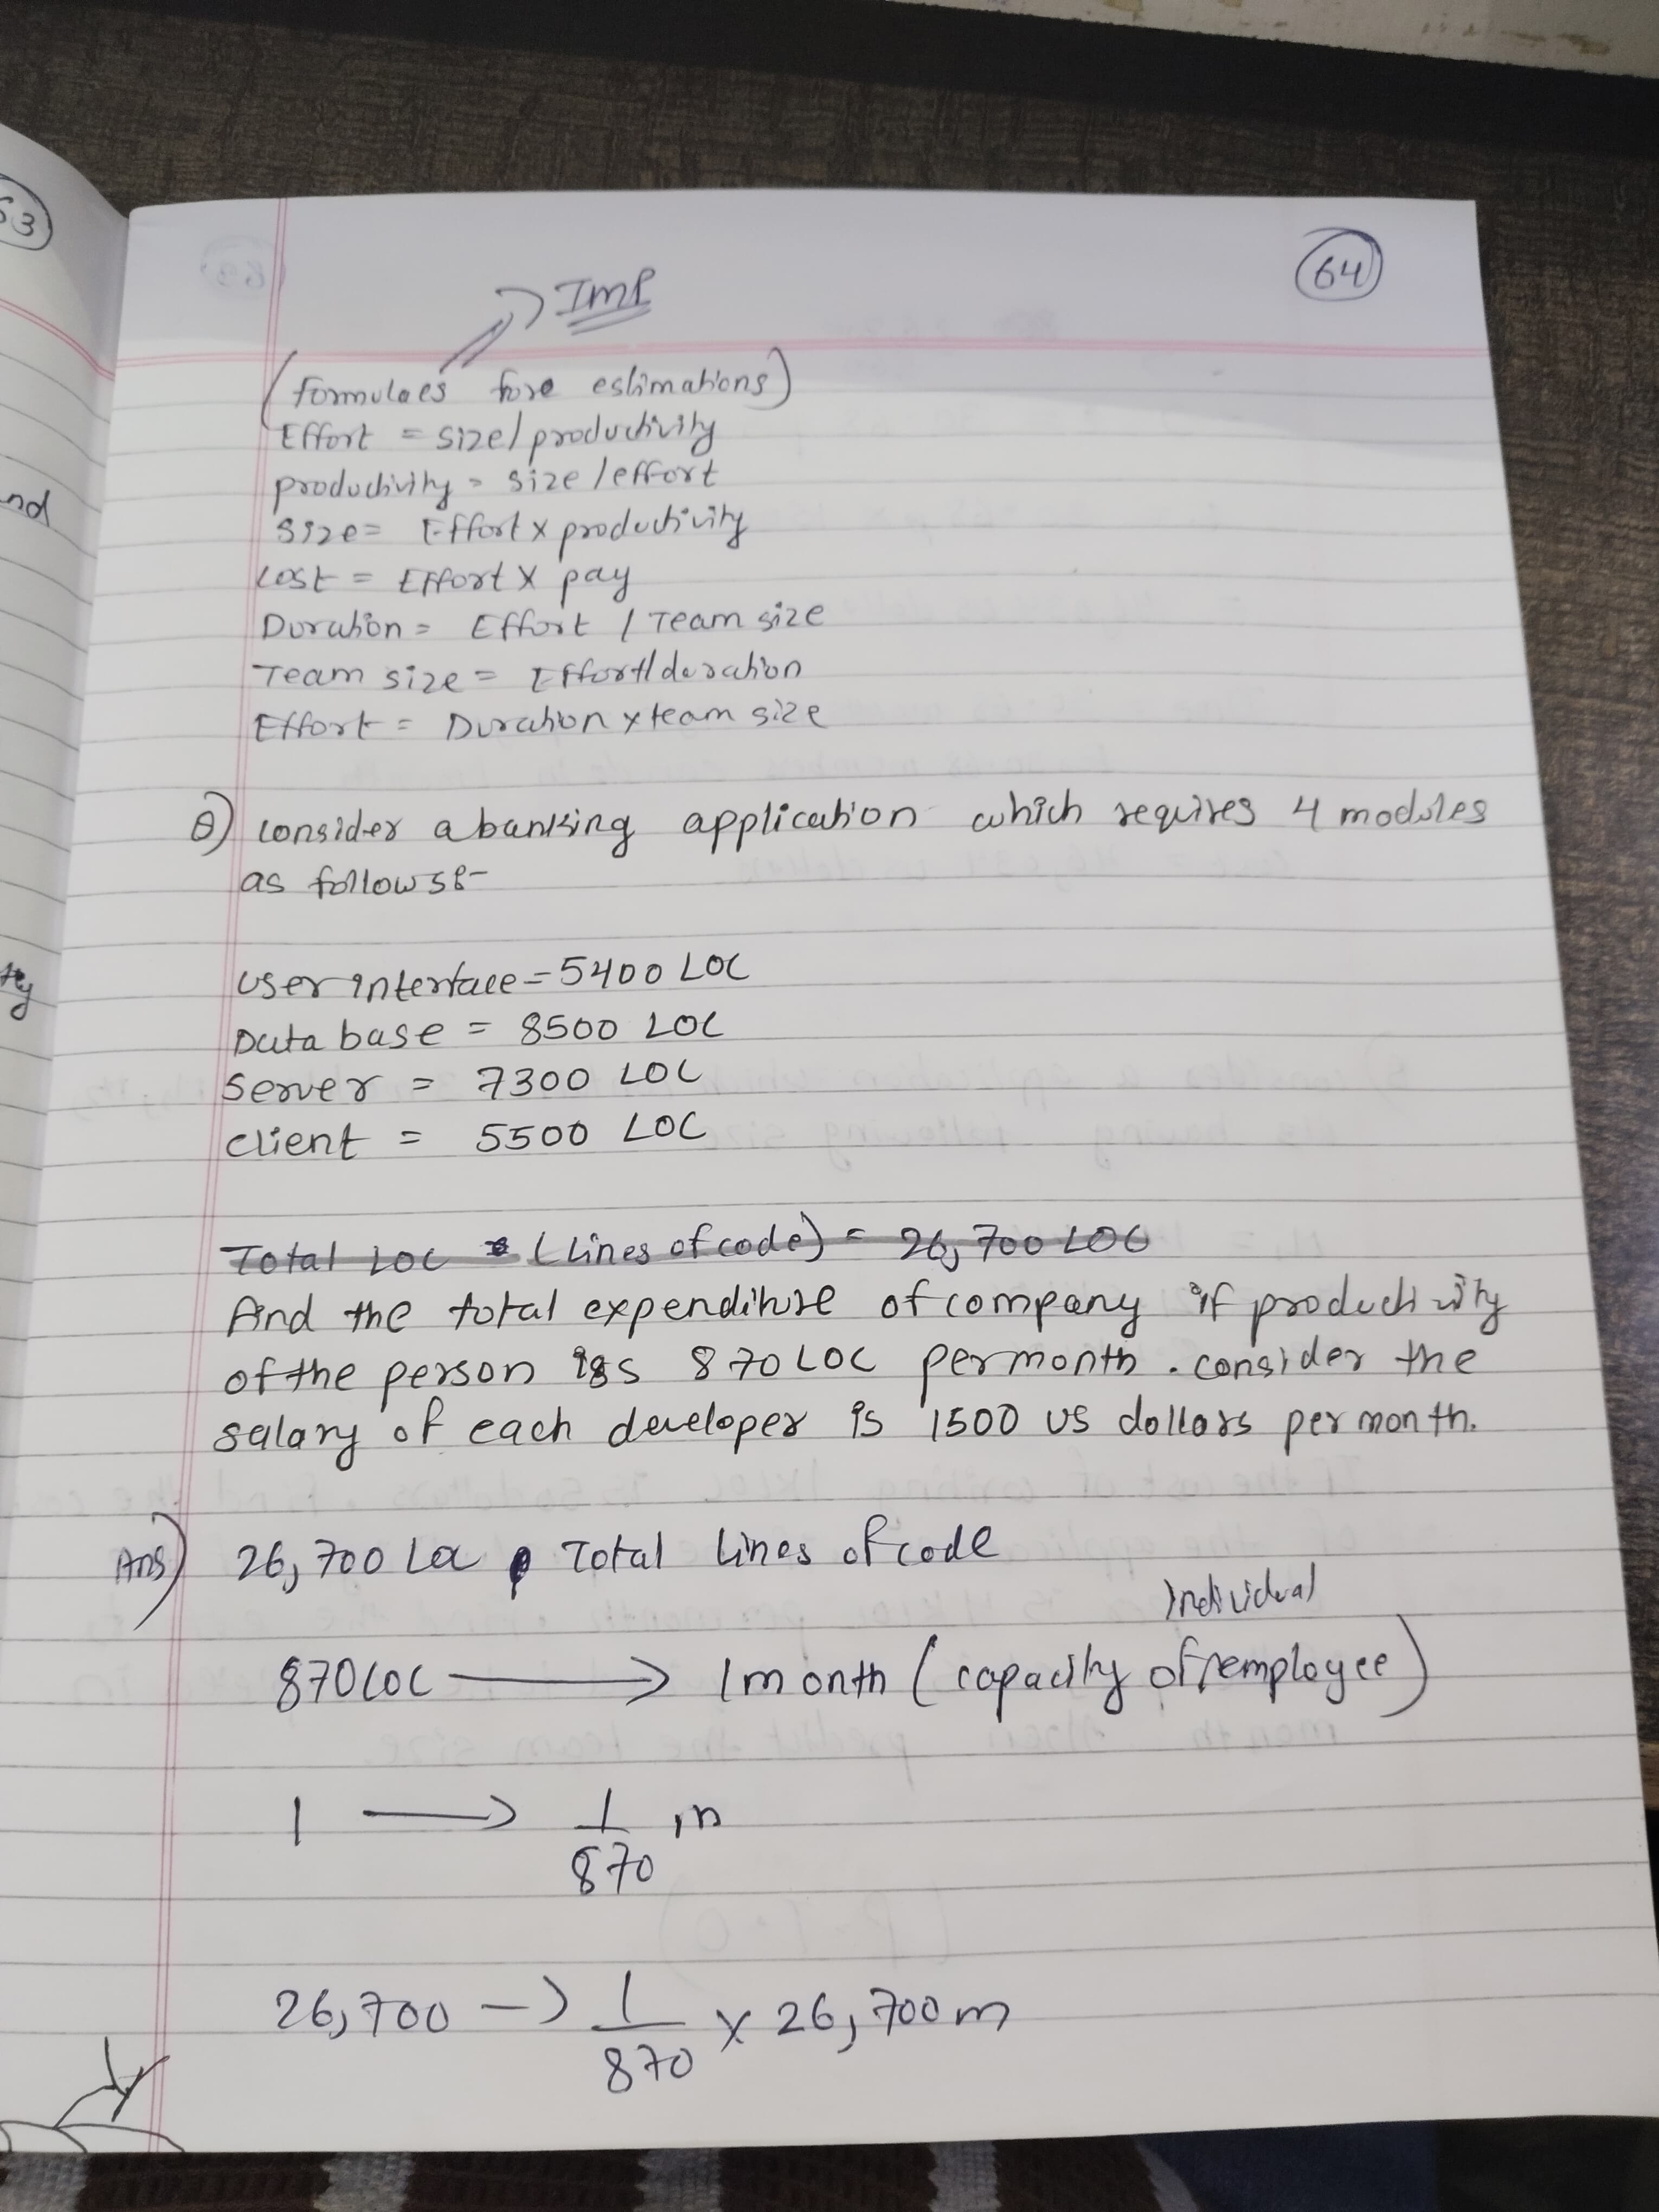 53
64
→ IMP
(formulaes fore estimations)
Effort = size / productivity
productivity = size / effort
Size = Effort x productivity
Cost = Effort x pay
Duration = Effort / Team size
Team size = Effort / duration
Effort = Duration x team size
Q) consider a banking application which requires 4 modules
as follows:-
User interface = 5400 LOC
Data base = 8500 LOC
Server = 7300 LOC
client = 5500 LOC
Total LOC (Lines of code) = 26,700 LOC
And the total expenditure of company if productivity
of the person is 870 LOC per month. consider the
salary of each developer is 1500 US dollars per month.
Ans) 26,700 Loc Total lines of code
870 LOC → 1 month (capacity of individual employee)
1 → 1/870 m
26,700 → 1/870 x 26,700 m
nd